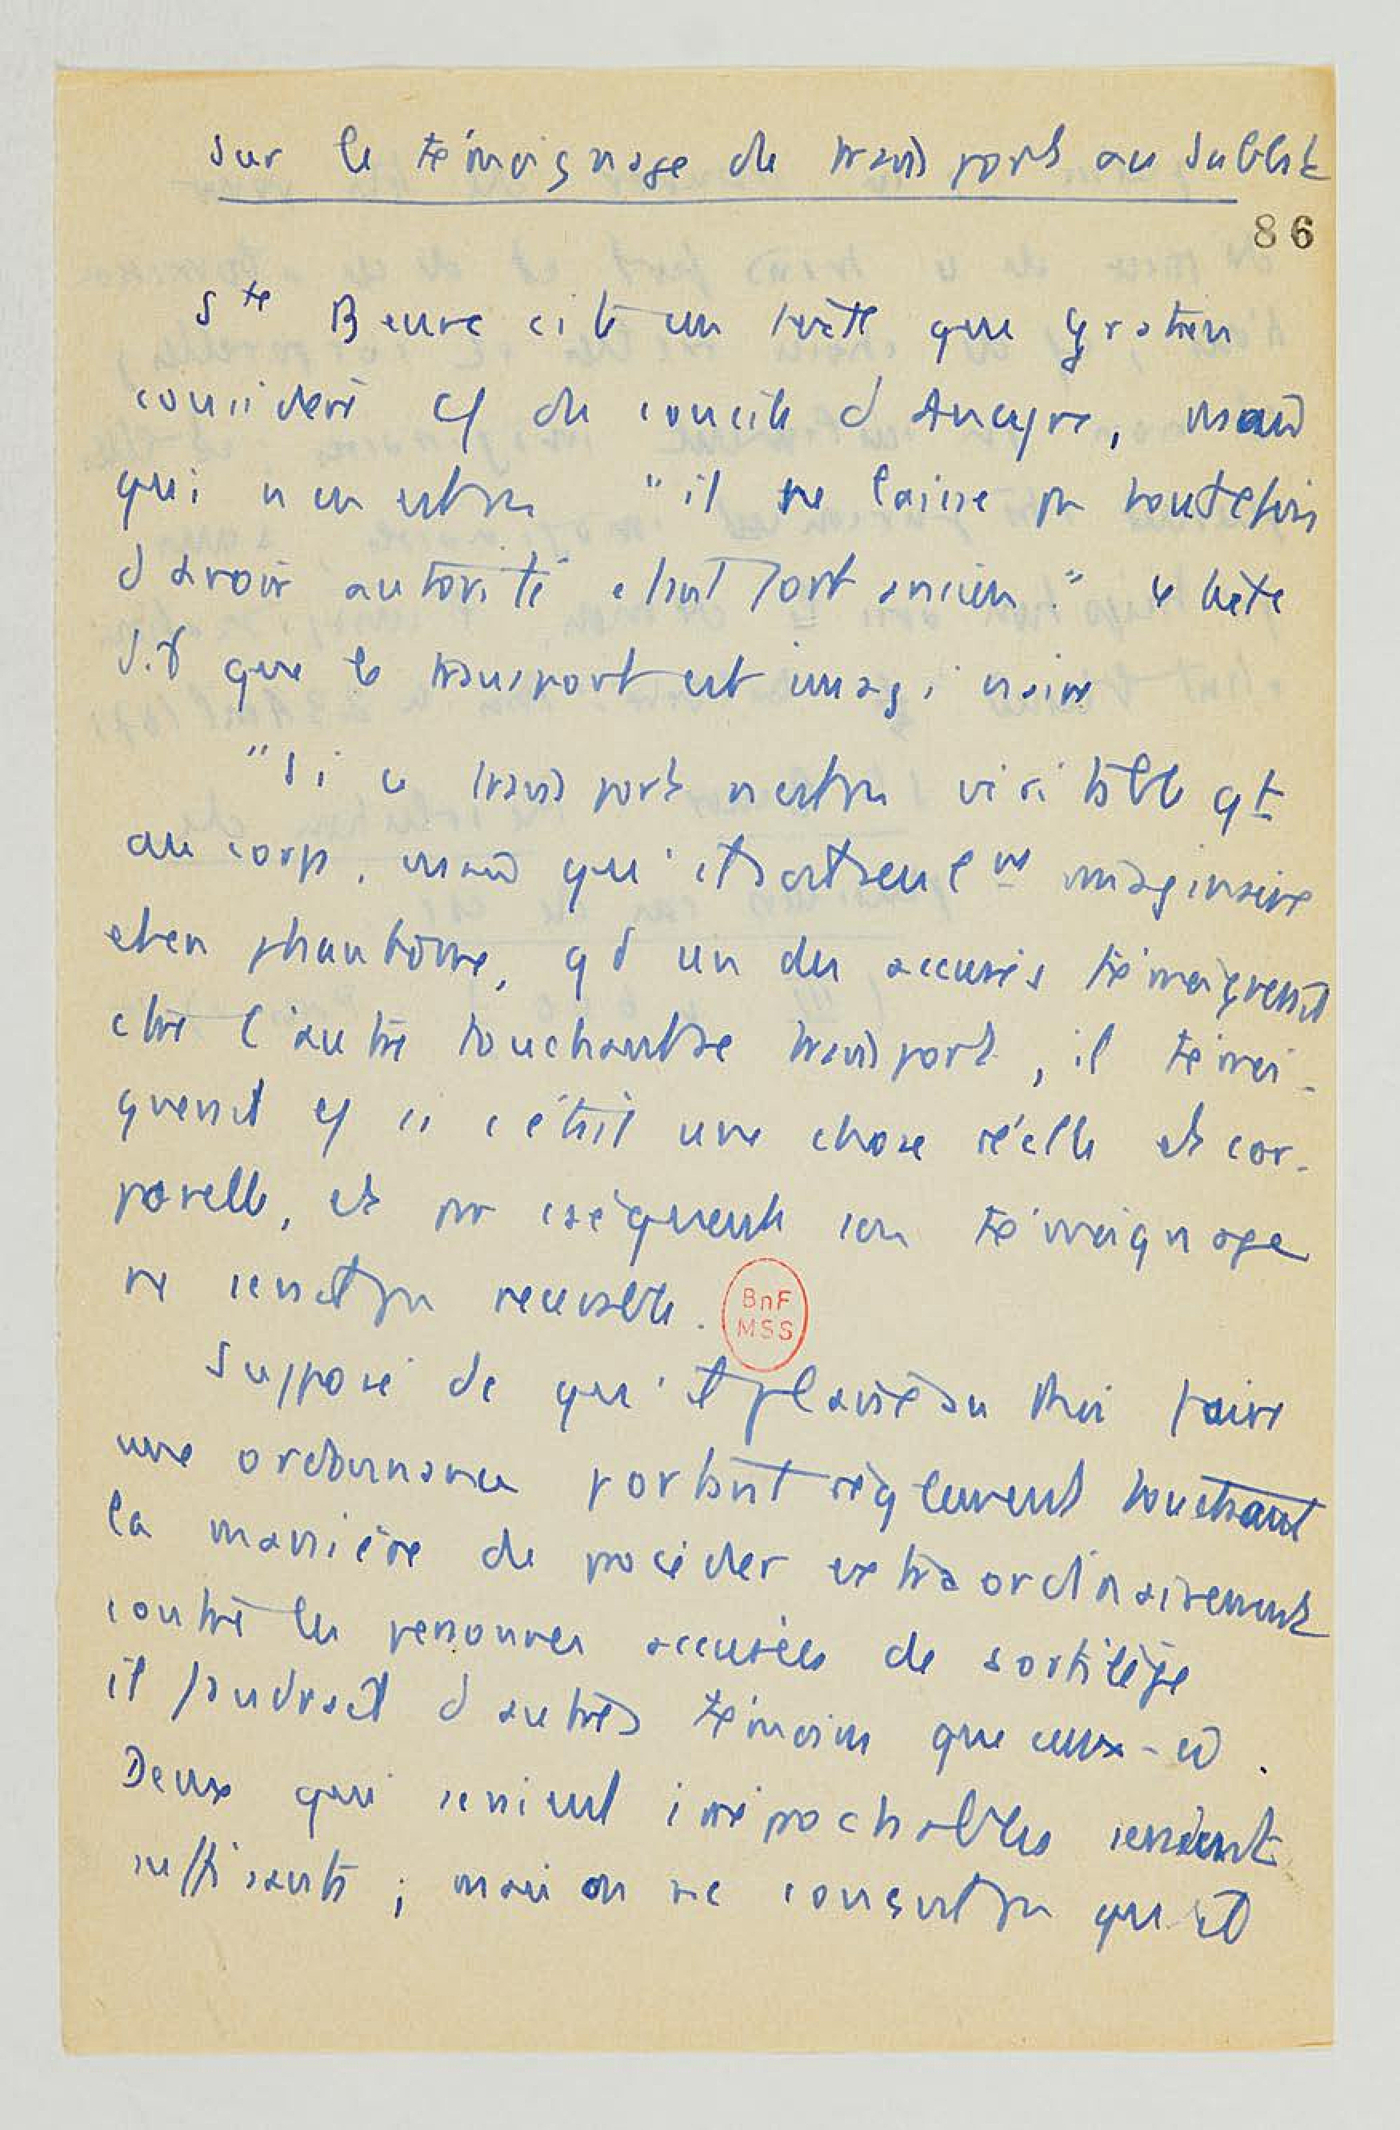 sur le témoignage du transport au sabbat
86
Ste Beuve cite un texte que Gratien
considère cf du concile d'Ancyre, mais
qui n'en est pas "il ne laisse pas toutefois
d'avoir autorité étant fort ancien." Ce texte
dit que le transport est imaginaire
"Si ce transport n'est pas véritable qt
au corps, mais qu'il soit seulemt imaginaire
et en phantôme, qd un des accusés témoignerait
ctre l'autre touchant ce transport, il témoi-
gnerait cf si c'était une chose réelle et cor-
porelle, et par cséquent son témoignage
ne serait pas recevable.
BnF
MSS
Supposé dc qu'il plaise au Roi faire
une ordonnance portant règlement touchant
la manière de procéder extraordinairement
contre les personnes accusées de sortilège
il faudrait d'autres témoins que ceux-ci.
Deux qui seraient irréprochables seraient
suffisants ; mais on ne conçoit pas qu'il